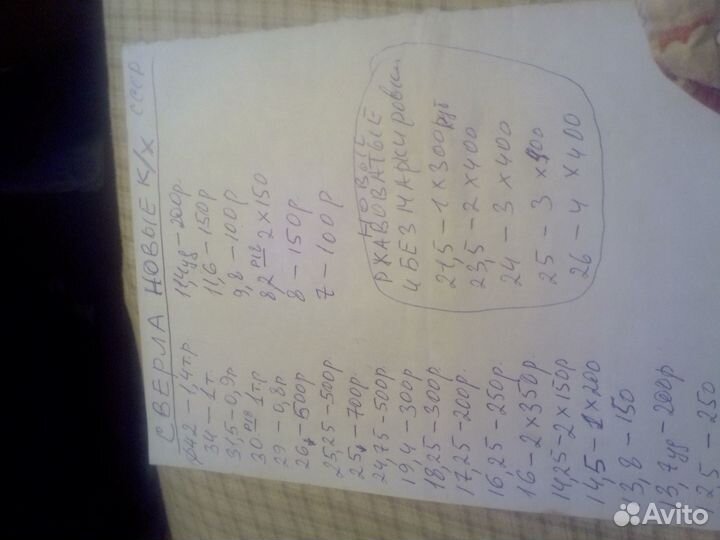 СВЕРЛА НОВЫЕ К/Х СССР
ф42 – 1,4 т.р
34 – 1 т.
31,5 – 0,9 р
30 Р18 1 т.р
29 – 0,8 р
26 – 500 р
25,25 – 500 р.
25 – 700 р.
24,75 – 500 р.
19,4 – 300 р
18,25 – 300 р.
17,25 – 200 р.
16,25 – 250 р.
16 – 2 х 350 р.
14,25 – 2 х 150 р
14,5 – 1 х 200
13,8 – 150
13,7 уд – 200 р
12,5 – 250
11,4 уд – 200 р.
11,6 – 150 р
9,8 – 100 р
8,2 Р18 2 х 150
8 – 150 р.
7 – 100 р
НОВЫЕ
РЖАВОВАТЫЕ
И БЕЗ МАРКИРОВКИ
21,5 – 1 х 300 руб
23,5 – 2 х 400
24 – 3 х 400
25 – 3 х 400
26 – 4 х 400
Avito